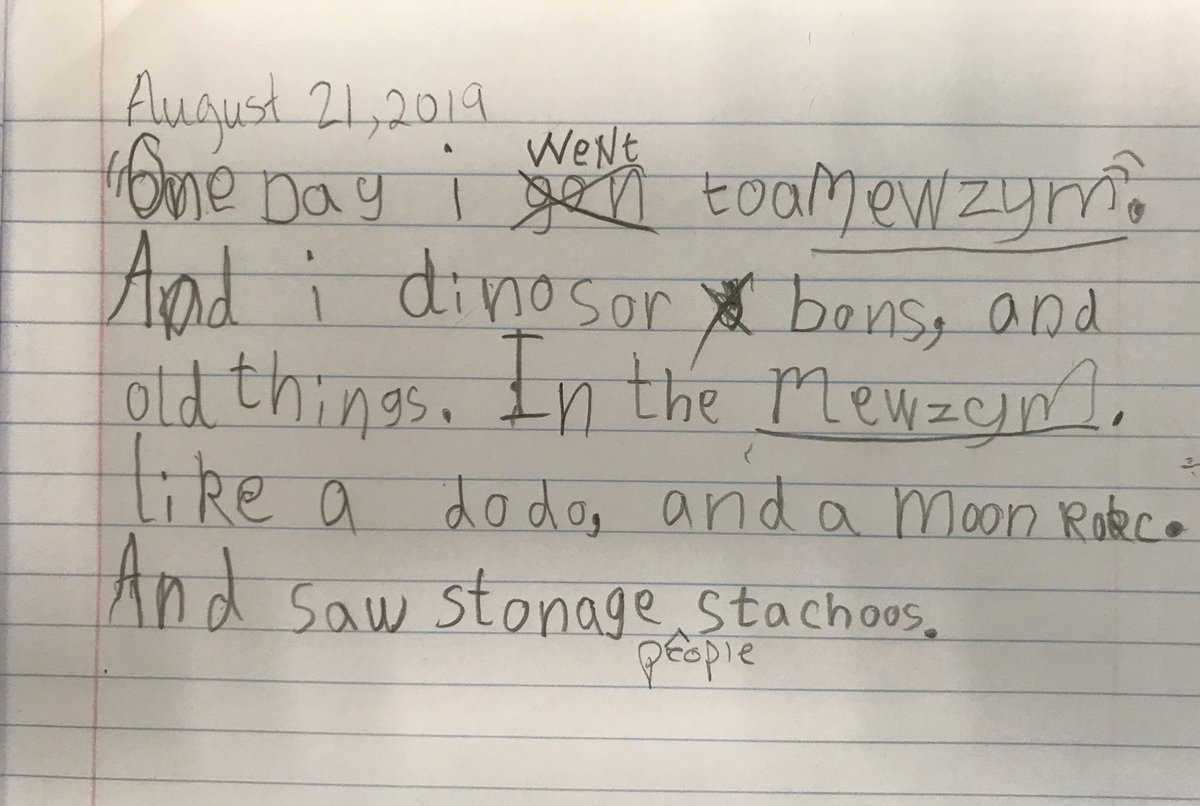 August 21, 2019
WeNt
"One Day i gon toa Mewzym".
And i dinosor bons, and
old things. In the Mewzym.
like a dodo, and a Moon Rokc.
And saw stonage stachoos.
people